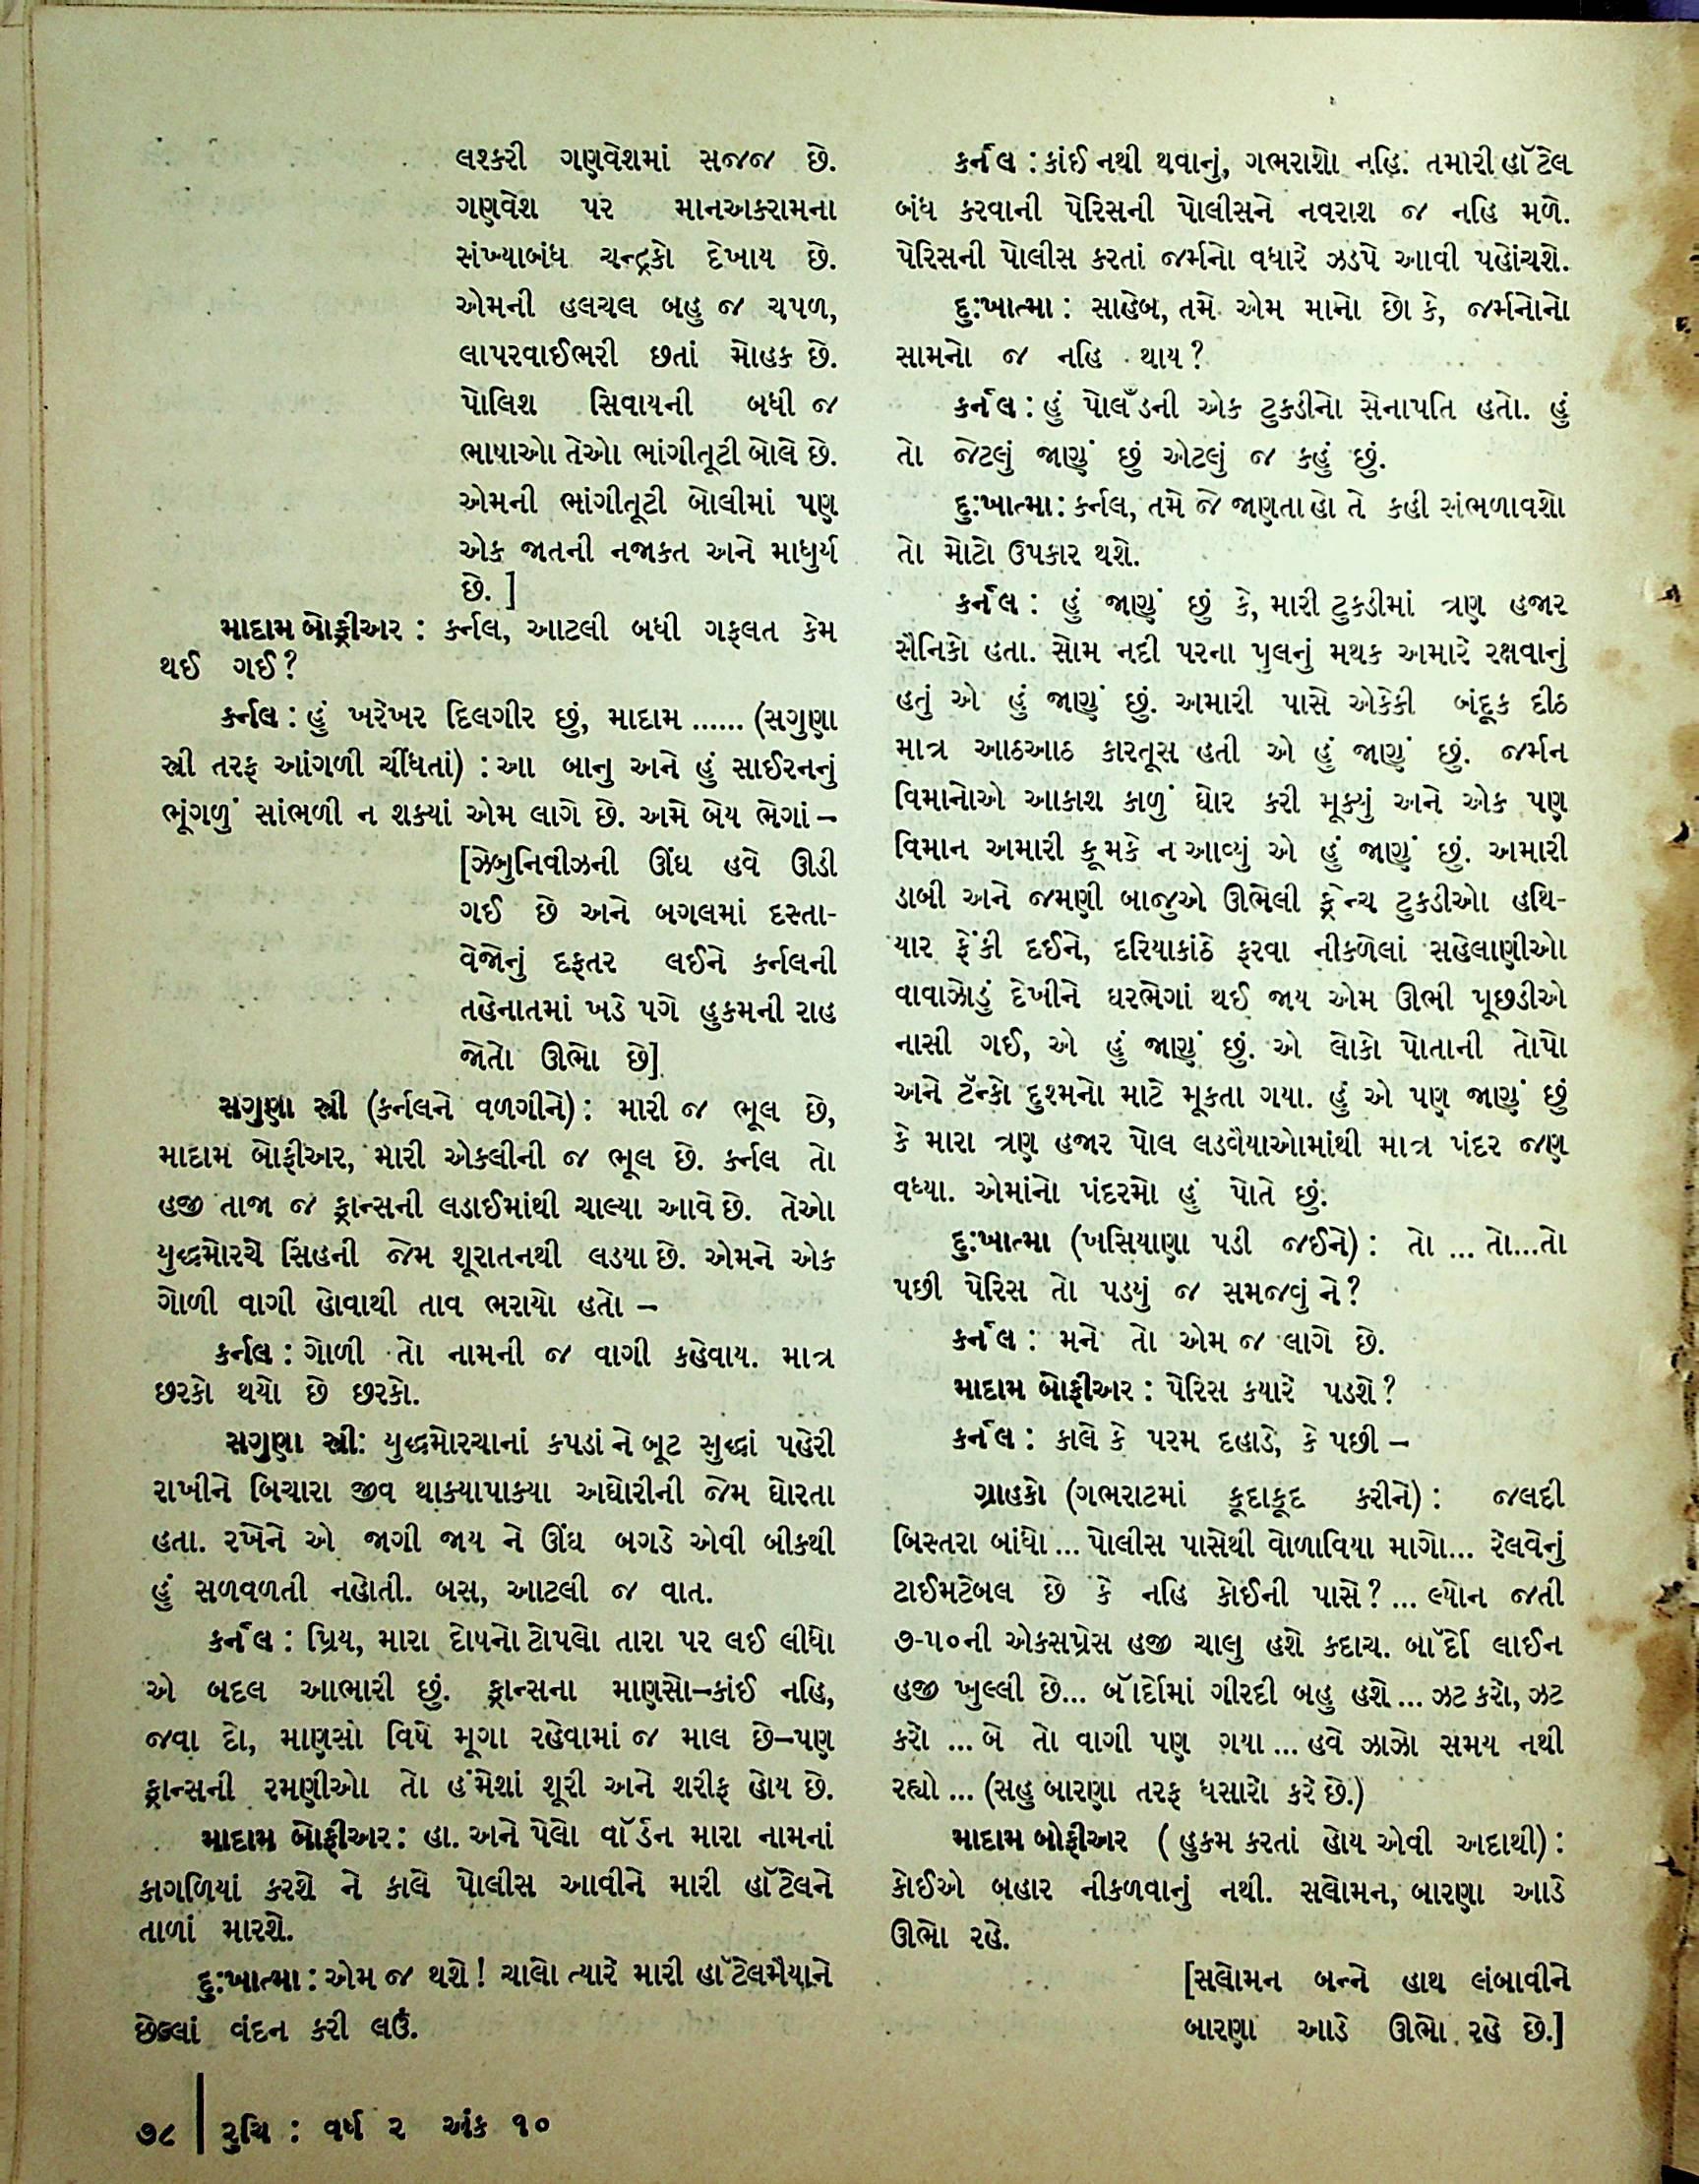 લશ્કરી ગણવેશમાં સજ્જ છે.
ગણવેશ પર માનઅકરામના
સંખ્યાબંધ ચન્દ્રકો દેખાય છે.
એમની હલચલ બહુ જ ચપળ,
લાપરવાઈભરી છતાં મોહક છે.
પોલિશ સિવાયની બધી જ
ભાષાઓ તેઓ ભાંગીતૂટી બોલે છે.
એમની ભાંગીતૂટી બોલીમાં પણ
એક જાતની નજાકત અને માધુર્ય
છે. ]
માદામ બોફ્રીઅર : કર્નલ, આટલી બધી ગફલત કેમ
થઈ ગઈ?
કર્નલ : હું ખરેખર દિલગીર છું, માદામ ...... (સગુણા
સ્ત્રી તરફ આંગળી ચીંધતાં) : આ બાનુ અને હું સાઈરનનું
ભૂંગળું સાંભળી ન શક્યાં એમ લાગે છે. અમે બેય ભેગાં –
[ઝેબુનિવીઝની ઊંઘ હવે ઊડી
ગઈ છે અને બગલમાં દસ્તા-
વેજોનું દફતર લઈને કર્નલની
તહેનાતમાં ખડે પગે હુકમની રાહ
જોતો ઊભો છે]
સગુણા સ્ત્રી (કર્નલને વળગીને) : મારી જ ભૂલ છે,
માદામ બોફ્રીઅર, મારી એકલીની જ ભૂલ છે. કર્નલ તો
હજી તાજા જ ફ્રાન્સની લડાઈમાંથી ચાલ્યા આવે છે. તેઓ
યુદ્ધમોરચે સિંહની જેમ શૂરાતનથી લડયા છે. એમને એક
ગોળી વાગી હોવાથી તાવ ભરાયો હતો –
કર્નલ : ગોળી તો નામની જ વાગી કહેવાય. માત્ર
છરકો થયો છે છરકો.
સગુણા સ્ત્રી: યુદ્ધમોરચાનાં કપડાં ને બૂટ સુદ્ધાં પહેરી
રાખીને બિચારા જીવ થાક્યાપાક્યા અઘોરીની જેમ ઘોરતા
હતા. રખેને એ જાગી જાય ને ઊંઘ બગડે એવી બીકથી
હું સળવળતી નહોતી. બસ, આટલી જ વાત.
કર્નલ : પ્રિય, મારા દોષનો ટોપલો તારા પર લઈ લીધો
એ બદલ આભારી છું. ફ્રાન્સના માણસો–કાંઈ નહિ,
જવા દો, માણસો વિષે મૂગા રહેવામાં જ માલ છે–પણ
ફ્રાન્સની રમણીઓ તો હંમેશાં શૂરી અને શરીફ હોય છે.
માદામ બોફ્રીઅર : હા. અને પેલો વૉર્ડન મારા નામનાં
કાગળિયાં કરશે ને કાલે પોલીસ આવીને મારી હૉટેલને
તાળાં મારશે.
દુ:ખાત્મા : એમ જ થશે! ચાલો ત્યારે મારી હૉટેલમૈયાને
છેલ્લાં વંદન કરી લઉં.
કર્નલ : કાંઈ નથી થવાનું, ગભરાશો નહિ. તમારી હૉટેલ
બંધ કરવાની પેરિસની પોલીસને નવરાશ જ નહિ મળે.
પેરિસની પોલીસ કરતાં જર્મનો વધારે ઝડપે આવી પહોંચશે.
દુ:ખાત્મા : સાહેબ, તમે એમ માનો છો કે, જર્મનોનો
સામનો જ નહિ થાય?
કર્નલ : હું પોલૅંડની એક ટુકડીનો સેનાપતિ હતો. હું
તો જેટલું જાણું છું એટલું જ કહું છું.
દુ:ખાત્મા : કર્નલ, તમે જે જાણતા હો તે કહી સંભળાવશો
તો મોટો ઉપકાર થશે.
કર્નલ : હું જાણું છું કે, મારી ટુકડીમાં ત્રણ હજાર
સૈનિકો હતા. સોમ નદી પરના પુલનું મથક અમારે રક્ષવાનું
હતું એ હું જાણું છું. અમારી પાસે એકેકી બંદૂક દીઠ
માત્ર આઠઆઠ કારતૂસ હતી એ હું જાણું છું. જર્મન
વિમાનોએ આકાશ કાળું ઘોર કરી મૂક્યું અને એક પણ
વિમાન અમારી કૂમકે ન આવ્યું એ હું જાણું છું. અમારી
ડાબી અને જમણી બાજુએ ઊભેલી ફ્રેન્ચ ટુકડીઓ હથિ-
યાર ફેંકી દઈને, દરિયાકાંઠે ફરવા નીકળેલાં સહેલાણીઓ
વાવાઝોડું દેખીને ઘરભેગાં થઈ જાય એમ ઊભી પૂછડીએ
નાસી ગઈ, એ હું જાણું છું. એ લોકો પોતાની તોપો
અને ટૅન્કો દુશ્મનો માટે મૂકતા ગયા. હું એ પણ જાણું છું
કે મારા ત્રણ હજાર પોલ લડવૈયાઓમાંથી માત્ર પંદર જણ
વધ્યા. એમાંનો પંદરમો હું પોતે છું.
દુ:ખાત્મા (ખસિયાણા પડી જઈને) : તો ... તો...તો
પછી પેરિસ તો પડયું જ સમજવું ને?
કર્નલ : મને તો એમ જ લાગે છે.
માદામ બોફ્રીઅર : પેરિસ કયારે પડશે?
કર્નલ : કાલે કે પરમ દહાડે, કે પછી –
ગ્રાહકો (ગભરાટમાં કૂદાકૂદ કરીને) : જલદી
બિસ્તરા બાંધો ... પોલીસ પાસેથી વોળાવિયા માગો... રેલવેનું
ટાઈમટેબલ છે કે નહિ કોઈની પાસે? ... લ્યોન જતી
૭-૫૦ની એક્સપ્રેસ હજી ચાલુ હશે કદાચ. બૉર્દો લાઈન
હજી ખુલ્લી છે... બૉર્દોમાં ગીરદી બહુ હશે ... ઝટ કરો, ઝટ
કરો ... બે તો વાગી પણ ગયા ... હવે ઝાઝો સમય નથી
રહ્યો ... (સહુ બારણા તરફ ધસારો કરે છે.)
માદામ બોફ્રીઅર ( હુકમ કરતાં હોય એવી અદાથી) :
કોઈએ બહાર નીકળવાનું નથી. સલોમન, બારણા આડે
ઊભો રહે.
[સલોમન બન્ને હાથ લંબાવીને
બારણા આડે ઊભો રહે છે.]
૭૮ | રુચિ : વર્ષ ૨ અંક ૧૦